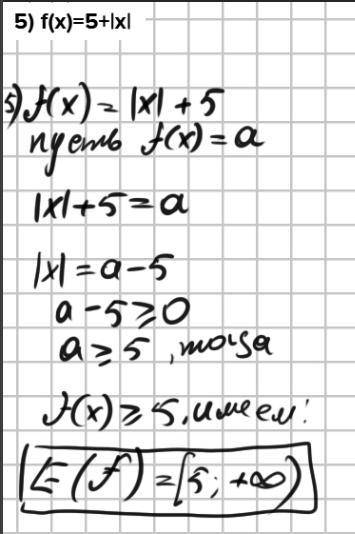 5) f(x)=5+|x|
5) f(x) = |x| + 5
пусть f(x) = a
|x| + 5 = a
|x| = a - 5
a - 5 ⩾ 0
a ⩾ 5, тогда
f(x) ⩾ 5, имеем:
E(f) = [5; +∞)